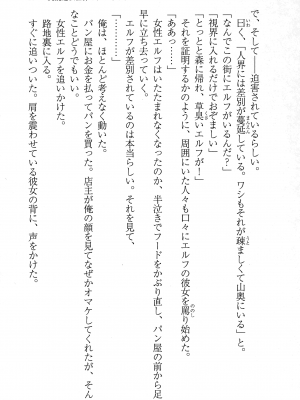 で、そして――迫害されているらしい。
曰く、「人界には差別が蔓延している。ワシもそれが疎ましくて山奥にいる」と。
「なんでこの街にエルフがいるんだ？」
「視界に入れるだけでおぞましい」
「とっとと森に帰れ、草臭いエルフが！」
それを証明するかのように、周囲にいた人々も口々にエルフの彼女を罵り始めた。
「ああっ……」
女性エルフはいたたまれなくなったのか、半泣きでフードをかぶり直し、パン屋の前から足
早に立ち去っていく。
エルフが差別されているのは本当らしい。それを見て、
「………………」
俺は、ほとんど考えなく動いた。
パン屋にお金を払ってパンを買った。店主が俺の顔を見てなぜかオマケしてくれたが、そん
なことどうでもいい。
女性エルフを追いかけた。
路地裏に入る。
すぐに追いついた。肩を震わせている彼女の背に、声をかけた。